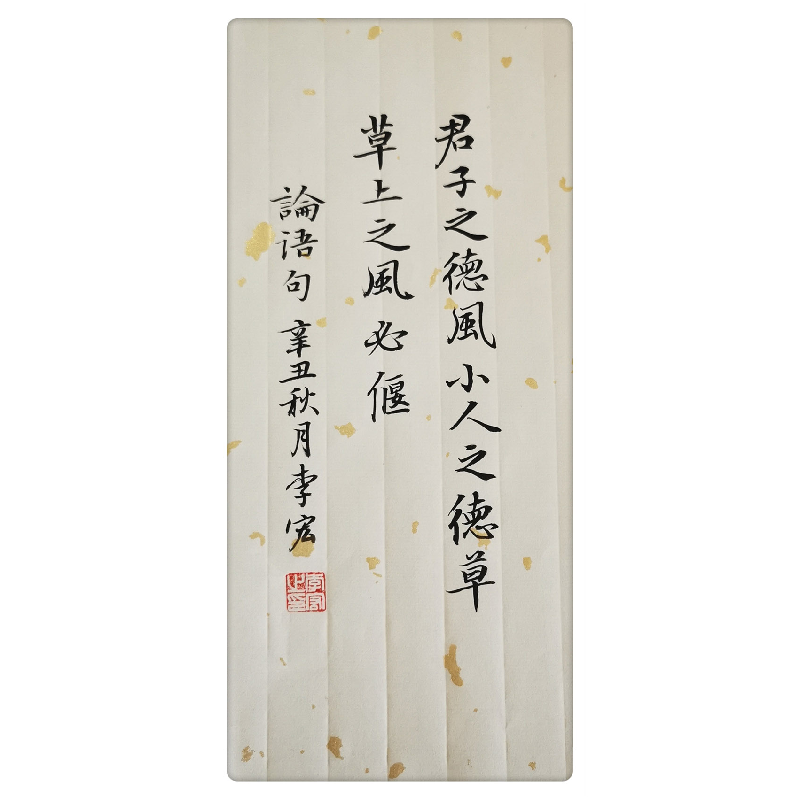 君子之德風小人之德草
草上之風必偃
論语句 辛丑秋月李宏
李宏之印